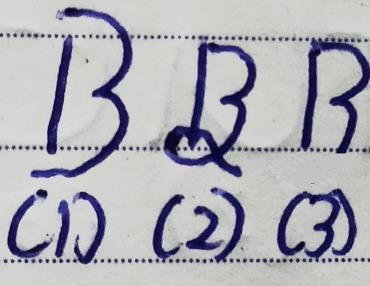 B B B
(1) (2) (3)